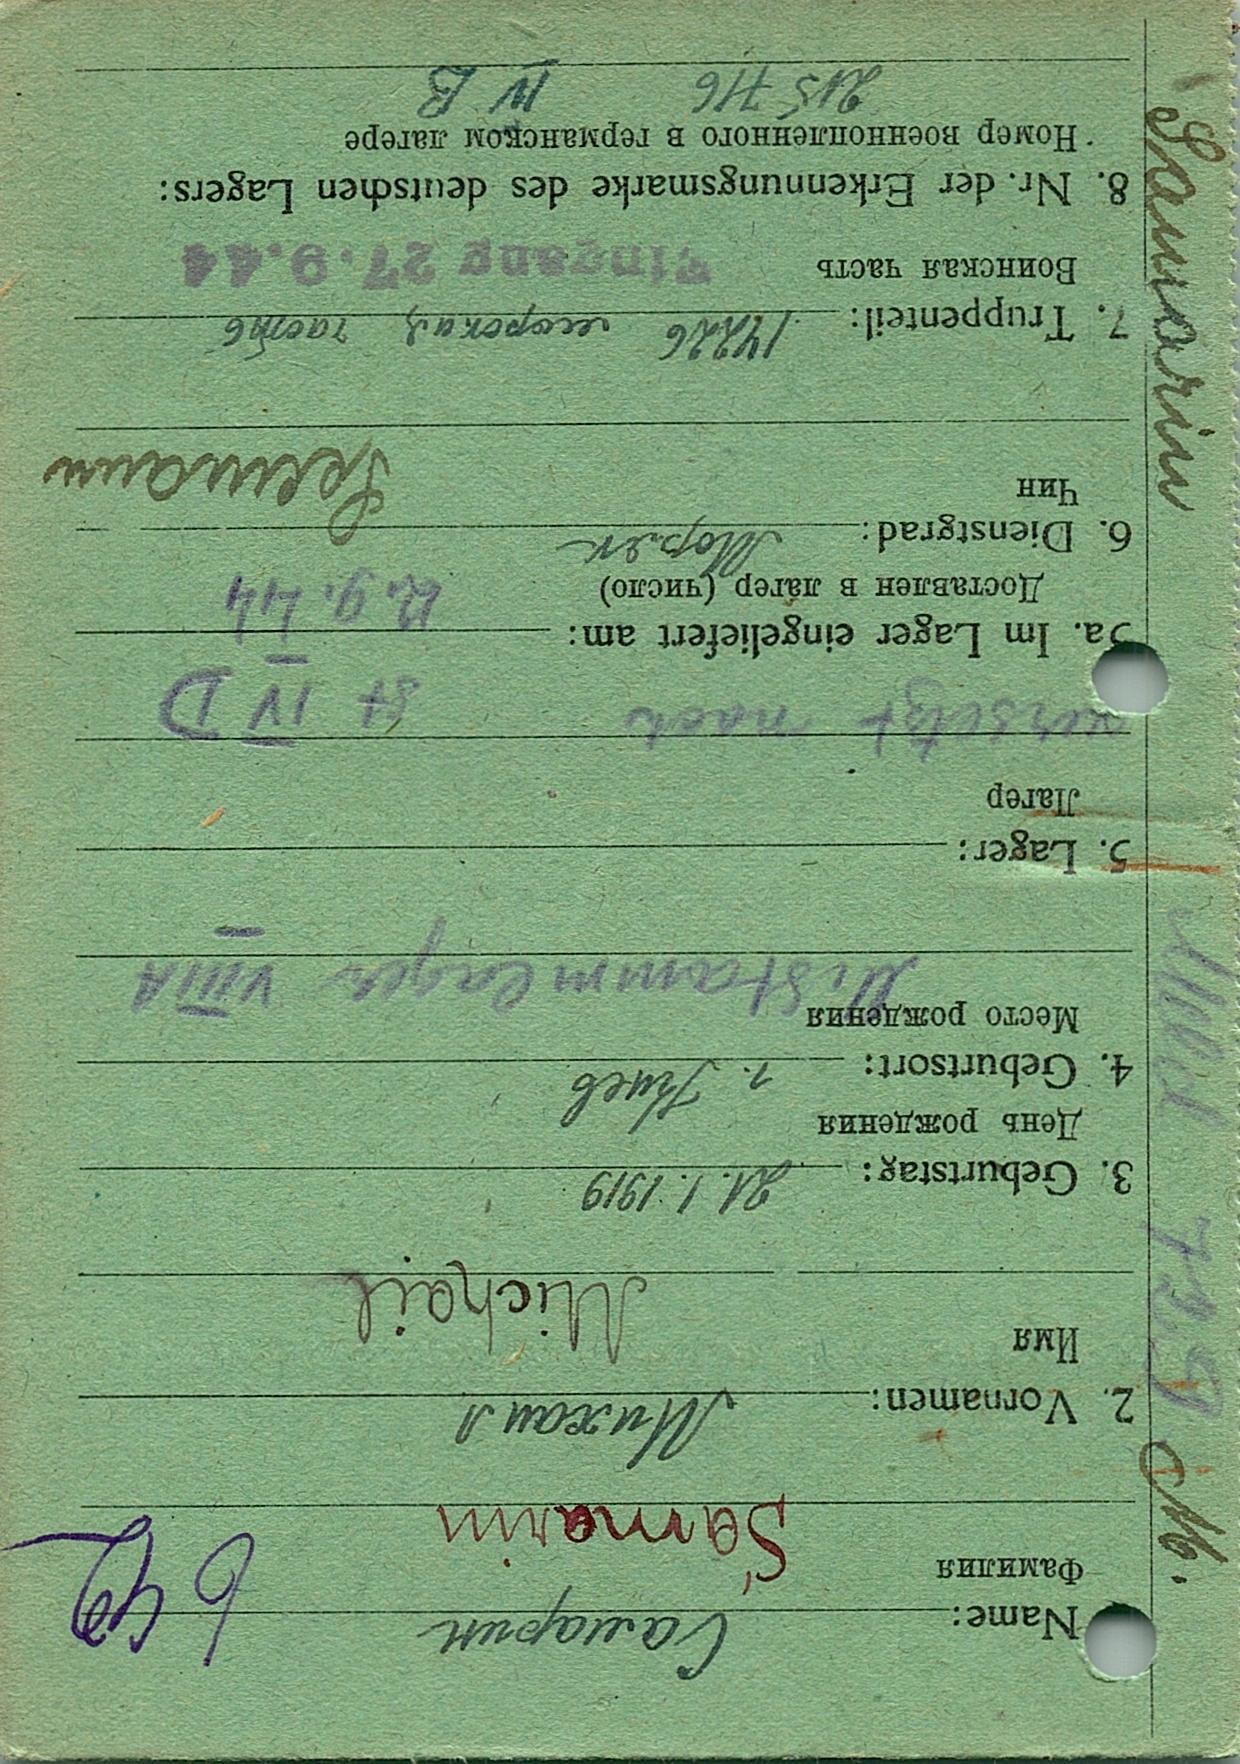 Name: Самарин
Фамилия
Samarin
2. Vornamen: Михаил
Имя
Michail
3. Geburtstag: 21.1.1919
День рождения
4. Geburtsort: г. Киев
Место рождения
M. Stammlager VIII A
5. Lager:
Лагерь
versetzt nach St IV D
5a. Im Lager eingeliefert am: 12.9.44
Доставлен в лагерь (число)
6. Dienstgrad:
Чин
Seemann
7. Truppenteil: 14226 морская часть
Воинская часть
Eingang 27.9.44
8. Nr. der Erkennungsmarke des deutschen Lagers:
Номер военнопленного в германском лагере
215716 IV B
Samarin
M.